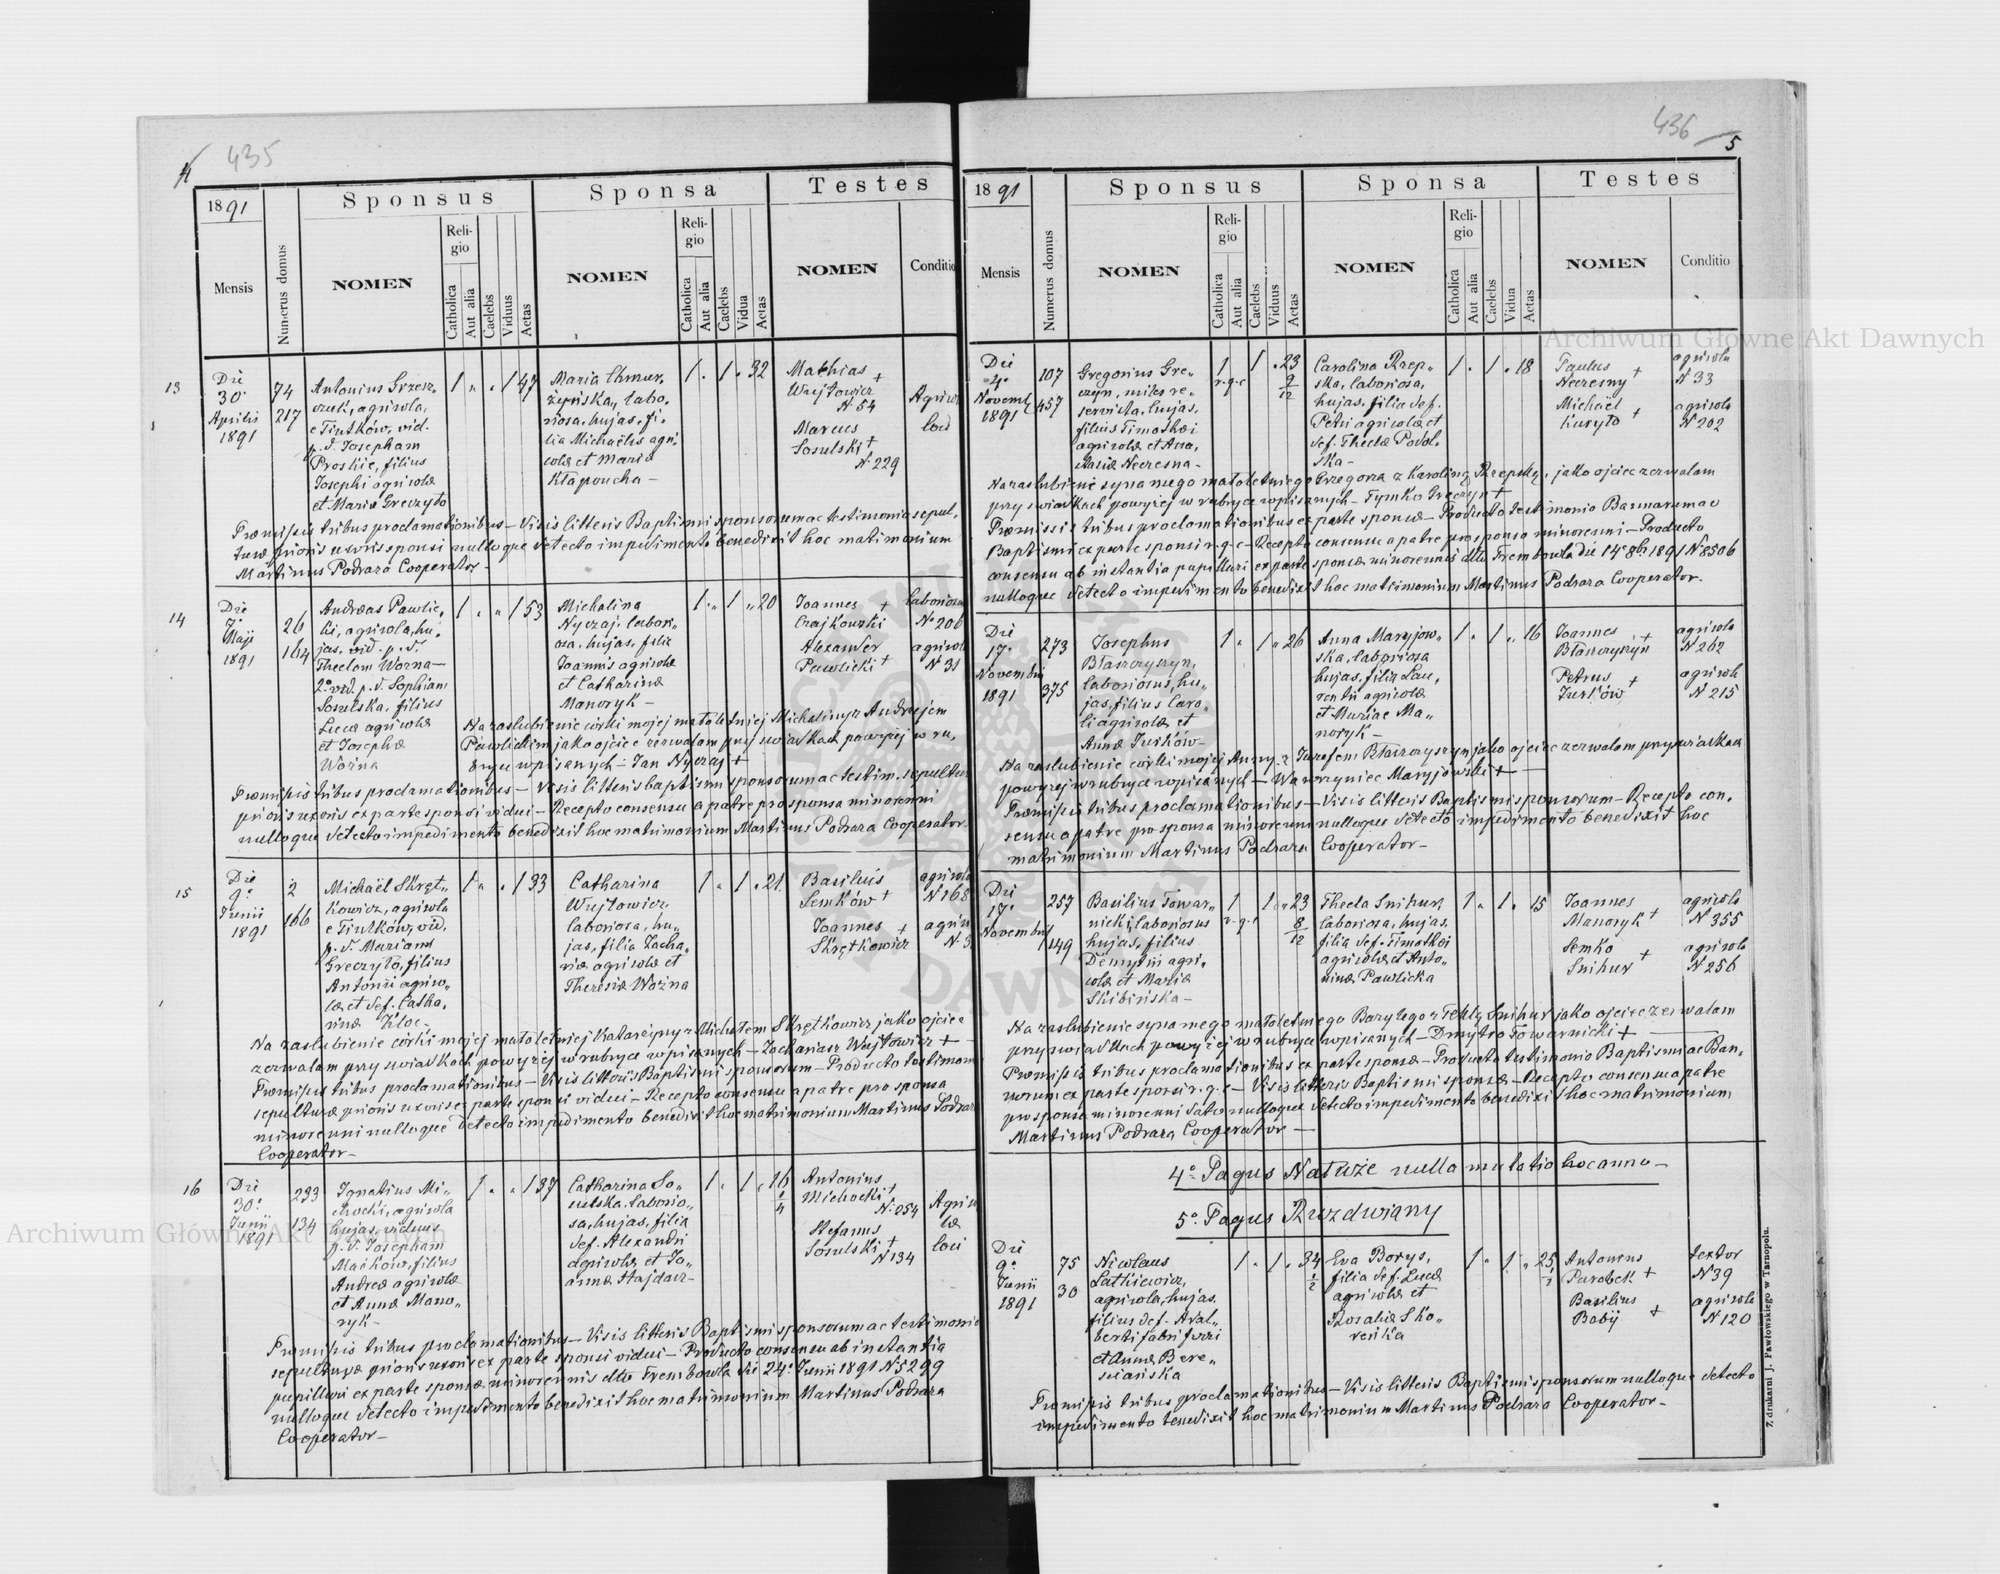 435
4
Sponsus
Sponsa
Testes
1891
Mensis
Numerus domus
NOMEN
Religio
Catholica
Aut alia
Caelebs
Viduus
Aetas
NOMEN
Religio
Catholica
Aut alia
Caelebs
Vidua
Aetas
NOMEN
Conditio
13
Die
30.
Aprilis
1891
74
217
Antonius Grzesz-
czuk, agricola,
e Tiutków, vid.
p. d. Josepham
Proskie, filius
Josephi agricolæ
et Mariæ Greczyło
1 „ „ 1 47
Maria Chmur-
zyńska, labo-
riosa, hujas, fi-
lia Michaëlis agri-
colæ et Mariæ
Kłapoucha -
1 . 1 . 32
Mathias +
Wujtowicz
N. 54
Marcus
Sosulski +
N. 229
Agricol
loci
Præmissis tribus proclamationibus - Visis litteris Baptismi sponsorum ac testimonio sepul-
turæ prioris uxoris sponsi nulloque detecto impedimento benedixit hoc matrimonium
Martinus Podraza Cooperator -
14
Die
7.
Maji
1891
26
164
Andreas Pawlic-
ki, agricola, hu-
jas, vid. p. d.
Theclam Worna -
2º vid. p. d. Sophiam
Sosulska, filius
Lucæ agricolæ
et Josephæ
Woźna
1 „ „ 1 53
Michalina
Nyczaj, labori-
osa, hujas, filia
Joannis agricolæ
et Catharinæ
Manoryk -
1 „ 1 „ 20
Joannes +
Czajkowski
Alexander
Pawlicki +
laboriosus
Nº 206
agricola
N 31
Na zaslubienie córki mojej małoletniej Michaliny z Andrzejem
Pawlickim jako ojciec zezwalam przy swiadkach powyzej w ru-
bryce wpisanych - Jan Nyczaj +
Præmissis tribus proclamationibus - Visis litteris baptismi sponsorum ac testim. sepultur
prioris uxoris ex parte sponsi vidui - Recepto consensu a patre pro sponsa minorenni
nulloque detecto impedimento benedixit hoc matrimonium Martinus Podraza Cooperator
15
Die
9.
Junii
1891
2
166
Michaël Skręt-
kowicz, agricola
e Tiutków, vid.
p. d. Mariam
Greczyło, filius
Antonii agrico-
læ et def. Catha-
rinæ Kloc.
1 „ . 1 33
Catharina
Wujtowicz
laboriosa, hu-
jas, filia Zacha-
riæ agricolæ et
Theresiæ Woźna
1 . 1 . 21
Basilius
Semków +
Joannes +
Skrętkowicz
agricola
N 168
agric
N. 3
Na zaslubienie córki mojej małoletniej Katarzyny z Michałem Skrętkowicz jako ojciec
zezwalam przy swiadkach powyzej w rubryce wpisanych - Zachariasz Wujtowicz +
Præmissis tribus proclamationibus - Visis litteris Baptismi sponsorum - Producto testimon
sepulturæ prioris uxoris ex parte sponsi vidui - Recepto consensu a patre pro sponsa
minorenni nulloque detecto impedimento benedixit hoc matrimonium Martinus Podraza
Cooperator -
16
Die
30.
Junii
1891
233
134
Ignatius Mi-
chocki, agricola
hujas, viduus
p. d. Josepham
Maćków, filius
Andreæ agricolæ
et Annæ Mano-
ryk -
1 . . 1 37
Catharina So-
sulska, laborio-
sa, hujas, filia
def. Alexandri
agricolæ et Jo-
annæ Hajdacz -
1 . 1 . 16
1/4
Antonius
Michocki +
N. 254
Stefanus
Sosulski +
N 134
Agrico
læ
loci
Præmissis tribus proclamationibus - Visis litteris Baptismi sponsorum ac testimonio
sepulturæ prioris uxoris ex parte sponsi vidui - Producto consensu ab instantia
pupillari ex parte sponsæ minorennis dto Trembowla die 24. Junii 1891 N 5299
nulloque detecto impedimento benedixit hoc matrimonium Martinus Podraza
Cooperator -
436
5
Sponsus
Sponsa
Testes
1891
Mensis
Numerus domus
NOMEN
Religio
Catholica
Aut alia
Caelebs
Viduus
Aetas
NOMEN
Religio
Catholica
Aut alia
Caelebs
Vidua
Aetas
NOMEN
Conditio
Die
4.
Novemb.
1891
107
457
Gregorius Gre-
czyn, miles re-
servista, hujas,
filius Timothei
agricolæ et Ana-
stasiæ Neczesna -
1
r. g. c
1 . 23
9/12
Carolina Rzep-
ska, laboriosa,
hujas, filia def.
Petri agricolæ et
def. Theclæ Podol-
ska -
1 . 1 . 18
Paulus
Neczesny +
Michaël
Kuryło +
agricola
N 33
agricola
N 202
Na zaslubienie syna mego małoletniego Grzegorza z Karoliną Rzepską, jako ojciec zezwalam
przy swiadkach powyzej w rubryce wpisanych - Tymko Greczyn +
Præmissis tribus proclamationibus ex parte sponsæ - Producto testimonio Bannorum ac
Baptismi ex parte sponsi r. g. c - Recepto consensu a patre pro sponso minorenni - Producto
consensu ab instantia pupillari ex parte sponsæ minorennis dto Trembowla die 14 8b 1891 N 8506
nulloque detecto impedimento benedixit hoc matrimonium Martinus Podraza Cooperator.
Die
17.
Novembris
1891
273
375
Josephus
Błaszczyszyn,
laboriosus, hu-
jas, filius Caro-
li agricolæ et
Annæ Jurków -
1 „ 1 „ 26
Anna Maryjow-
ska, laboriosa
hujas, filia Lau-
rentii agricolæ
et Mariae Ma-
noryk -
1 . 1 . 16
Joannes +
Błaszczyszyn
Petrus +
Jurków
agricola
N 262
agricola
N 215
Na zaslubienie córki mojej Anny z Jozefem Błaszczyszyn jako ojciec zezwalam przy swiadkach
powyzej w rubryce wpisanych - Wawrzyniec Maryjowski +
Præmissis tribus proclamationibus - Visis litteris Baptismi sponsorum - Recepto con-
sensu a patre pro sponsa minorenni nulloque detecto impedimento benedixit hoc
matrimonium Martinus Podraza Cooperator -
Die
17.
Novembris
257
149
Basilius Towar-
nicki, laboriosus
hujas, filius
Demytrii agri-
colæ et Mariæ
Skibińska -
1
r. g. c
1 . 23
8/12
Thecla Snihur,
laboriosa, hujas,
filia def. Timothei
agricolæ et Anto-
ninæ Pawlicka
1 . 1 . 15
Joannes
Manoryk +
Semko
Snihur +
agricola
N 355
agricola
N 256
Na zaslubienie syna mego małoletniego Bazylego z Teklą Snihur jako ojciec zezwalam
przy swiadkach powyzej w rubryce wpisanych - Dmytro Towarnicki +
Præmissis tribus proclamationibus ex parte sponsæ - Producto testimonio Baptismi ac Ban-
norum ex parte sponsi r. g. c - Visis litteris Baptismi sponsæ - Recepto consensu a patre
pro sponso minorenni dato nulloque detecto impedimento benedixit hoc matrimonium
Martinus Podraza Cooperator -
4º Pagus Nałuże nulla mutatio hoc anno -
5º Pagus Ruzdwiany
Die
9.
Junii
1891
75
30
Nicolaus
Latkiewicz,
agricola, hujas,
filius def. Adal-
berti fabri ferri
et Annæ Bere-
siańska
1 . 1 . 34
1/2
Eva Borys,
filia def. Lucæ
agricolæ et
Rosaliæ Sko-
reńka
1 . 1 . 25
1/2
Antonius
Parobek +
Basilius
Babij +
textor
N 39
agricola
N 120
Præmissis tribus proclamationibus - Visis litteris Baptismi sponsorum nulloque detecto
impedimento benedixit hoc matrimonium Martinus Podraza Cooperator -
Z drukarni J. Pawłowskiego w Tarnopolu.
Archiwum Główne Akt Dawnych
Archiwum Główne Akt Dawnych